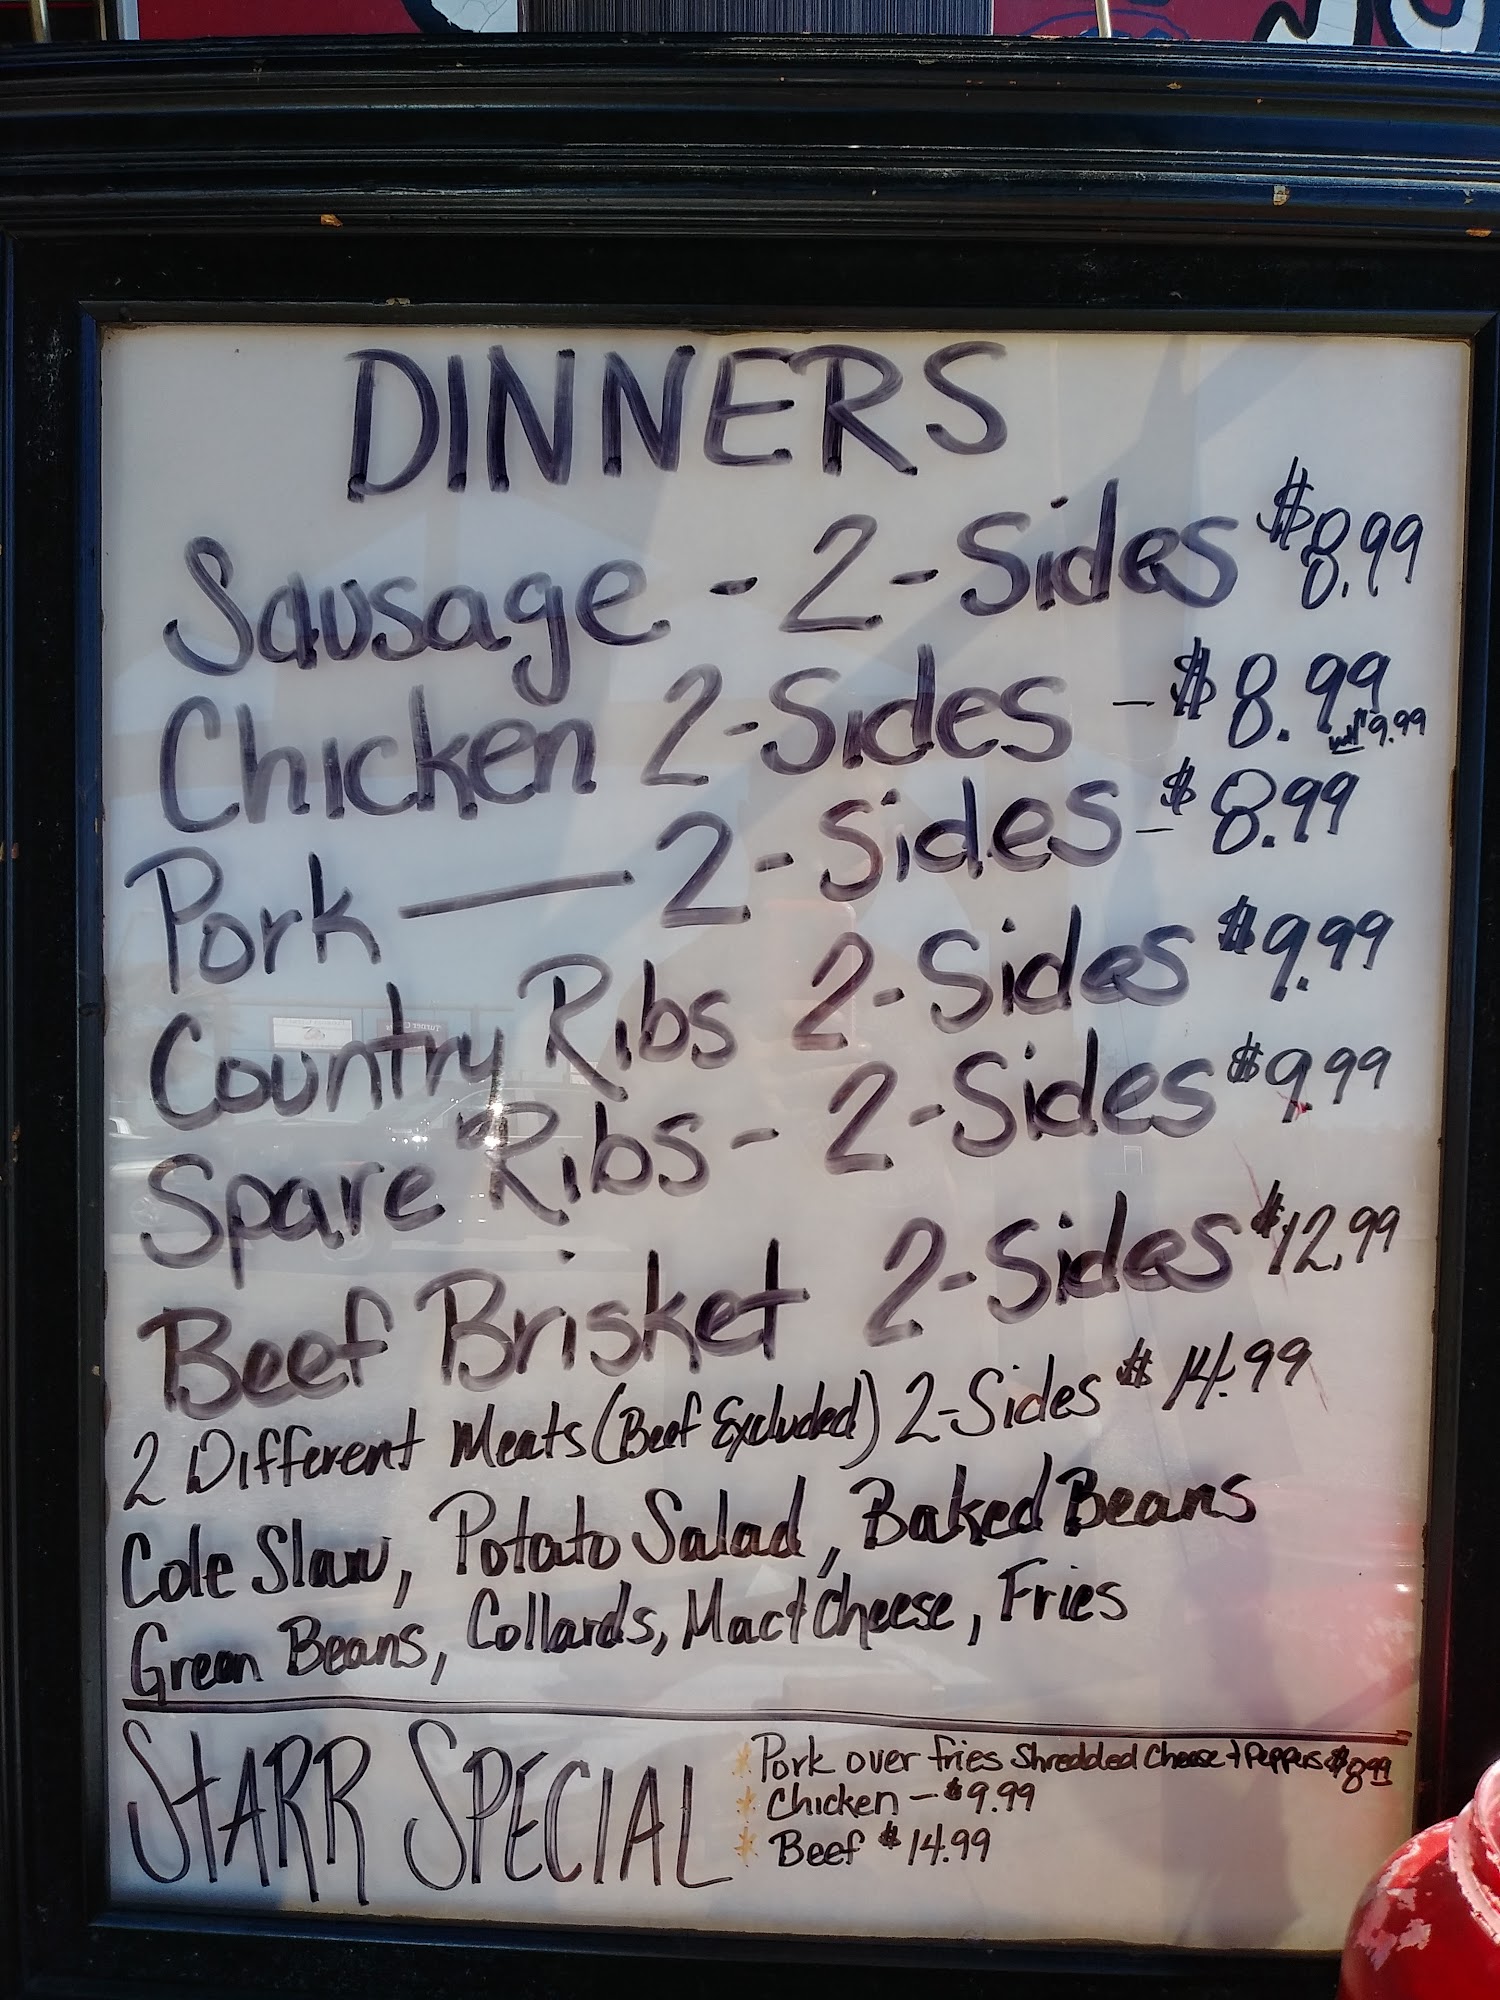 DINNERS
Sausage - 2 - Sides $8.99
Chicken 2-Sides - $8.99
$9.99
Pork — 2 - Sides - $8.99
Country Ribs 2-Sides $9.99
Spare Ribs - 2-Sides $9.99
Beef Brisket 2-Sides $12.99
2 Different Meats (Beef Excluded) 2-Sides $14.99
Cole Slaw, Potato Salad, Baked Beans
Green Beans, Collards, Mac & Cheese, Fries
STARR SPECIAL
* Pork over fries Shredded Cheese + Peppers $8.99
* Chicken - $9.99
* Beef $14.99